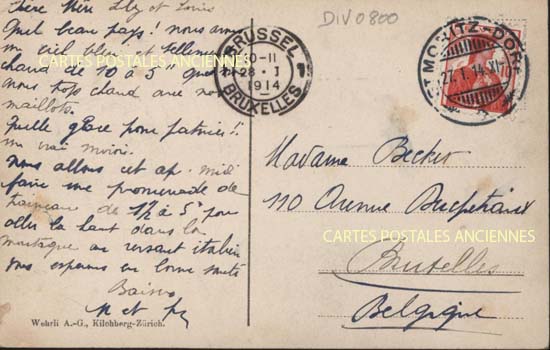 Chère Mère Lily et Louis
Quel beau pays! nous avons
un ciel bleu et tellement
chaud de 10 à 5
nous trop chaud avec nos
maillots.
Quelle glace pour patiner!!
un vrai miroir.
nous allons cet ap. midi
faire une promenade de
traineau de 1½ à 5 pour
aller là haut dans la
montagne au versant italien
vous espérons en bonne santé
Baisers
M et
Wehrli A.-G., Kilchberg-Zürich.
DIV0800
BRUSSEL
10-11
28 I
1914
BRUXELLES
1
ST. MORITZ-DORF
27. I. 14. XI
Madame Becker
110 Avenue
CARTES POSTALES ANCIENNES
CARTES POSTALES ANCIENNES
Bruxelles
Belgique
CARTES POSTALES ANCIENNES